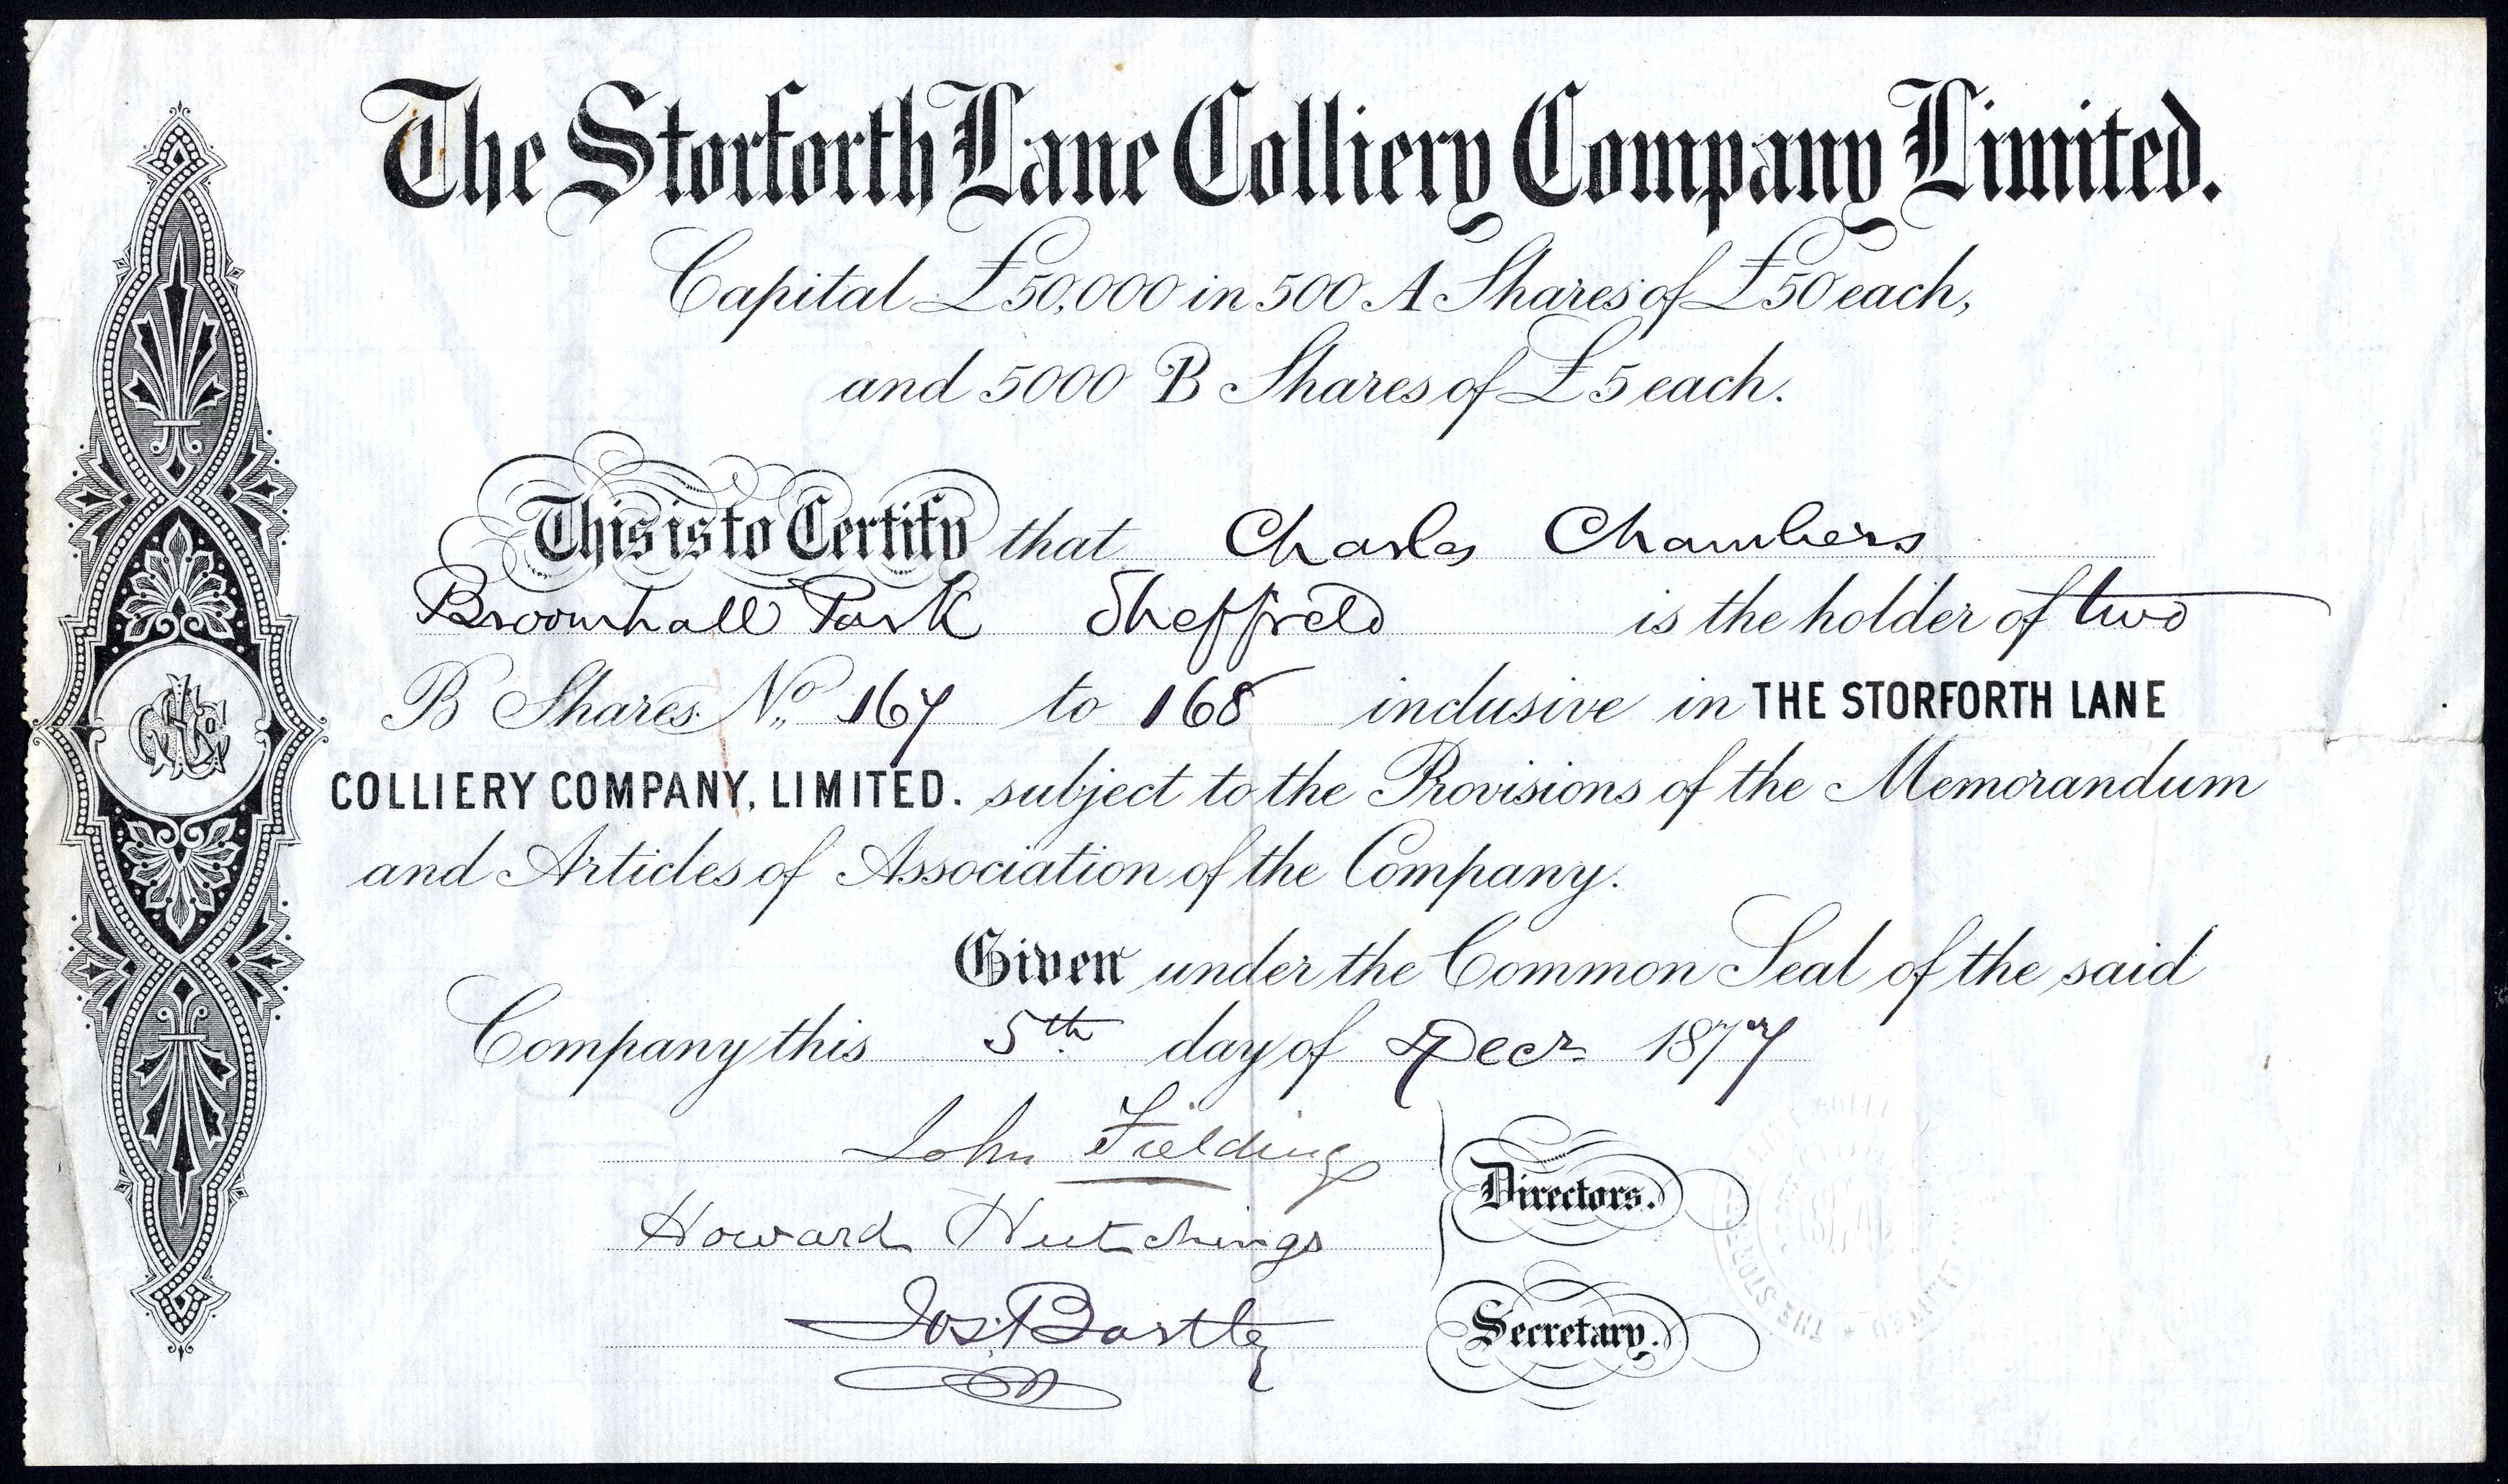 The Storforth Lane Colliery Company Limited.
Capital £50,000 in 500 A Shares of £50 each,
and 5000 B Shares of £5 each.
This is to Certify that Charles Chambers
Broomhall Park Sheffield is the holder of two
B Shares No. 167 to 168 inclusive in THE STORFORTH LANE
COLLIERY COMPANY, LIMITED. subject to the Provisions of the Memorandum
and Articles of Association of the Company.
Given under the Common Seal of the said
Company this 5th day of Decr 1877
John Fielding
Directors.
Howard Hutchings
Jos. Bartley Secretary.